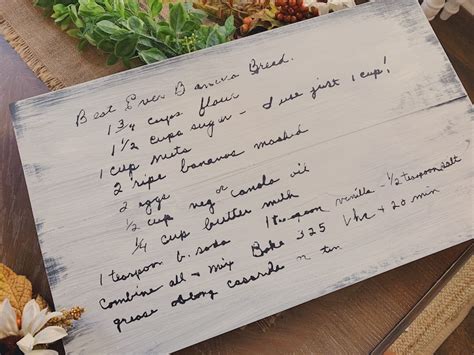 Best Ever Banana Bread.
1 3/4 cups flour
1 1/2 cups sugar - I use just 1 cup!
1 cup nuts
2 ripe bananas mashed
2 eggs
1/2 cup veg or canola oil
1/4 cup butter milk
1 teaspoon b. soda 1 teaspoon vanilla - 1/2 teaspoon salt
combine all + mix Bake 325 1 hr + 20 min
grease oblong casserole or tin